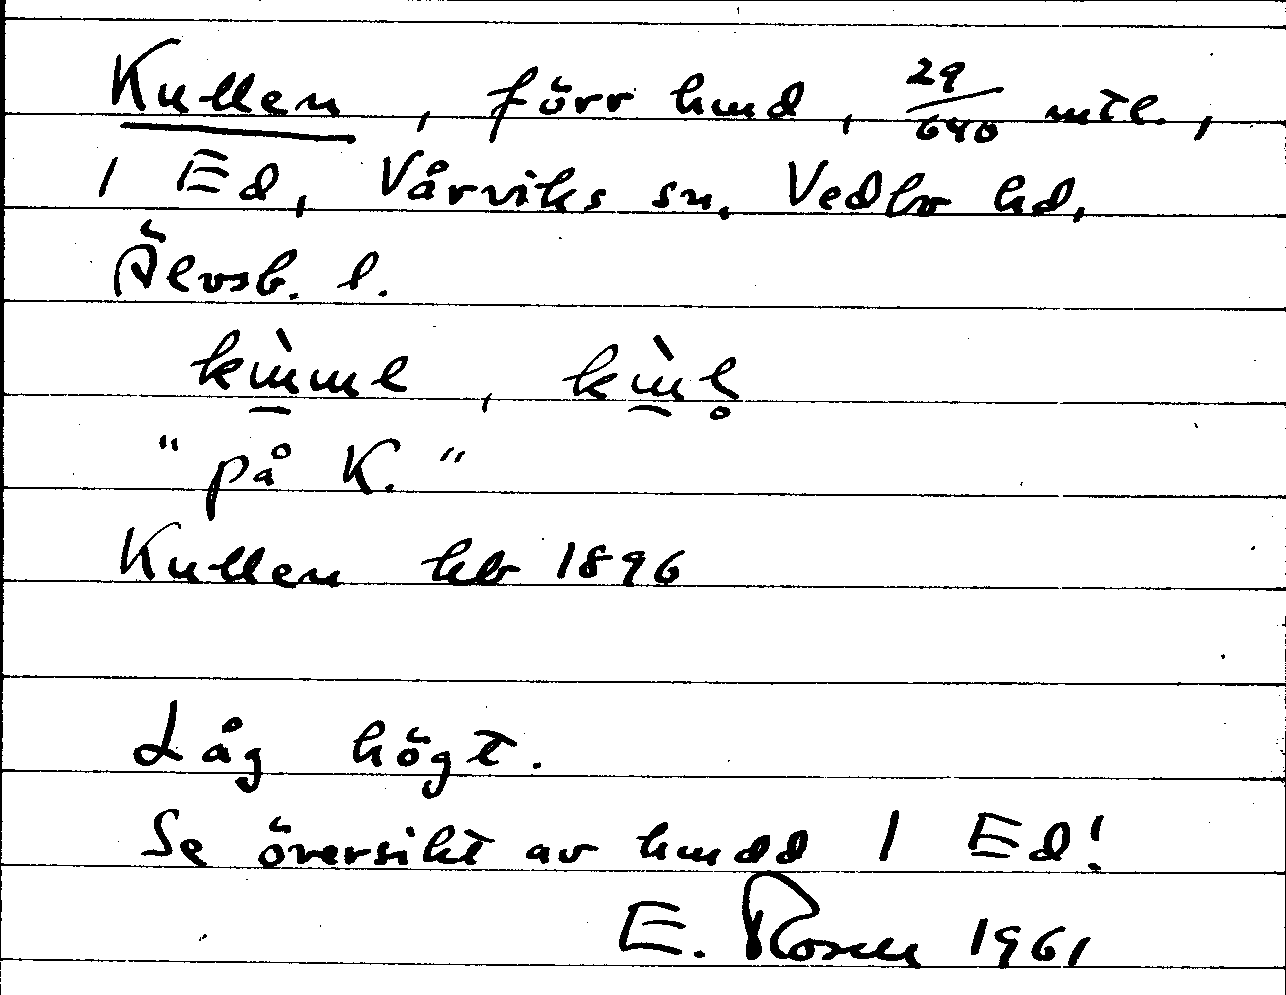 Kullen, förr hmd, 29/640 mtl.,
1 Ed, Vårviks sn, Vedbo hd,
Älvsb. l.
"på K."
Kullen hb 1896
Låg högt.
Se översikt av hmdd 1 Ed!
E. Rosén 1961